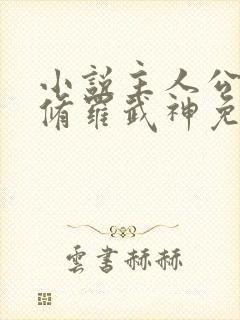 小說主人公
脩羅武神免
雲書赫赫